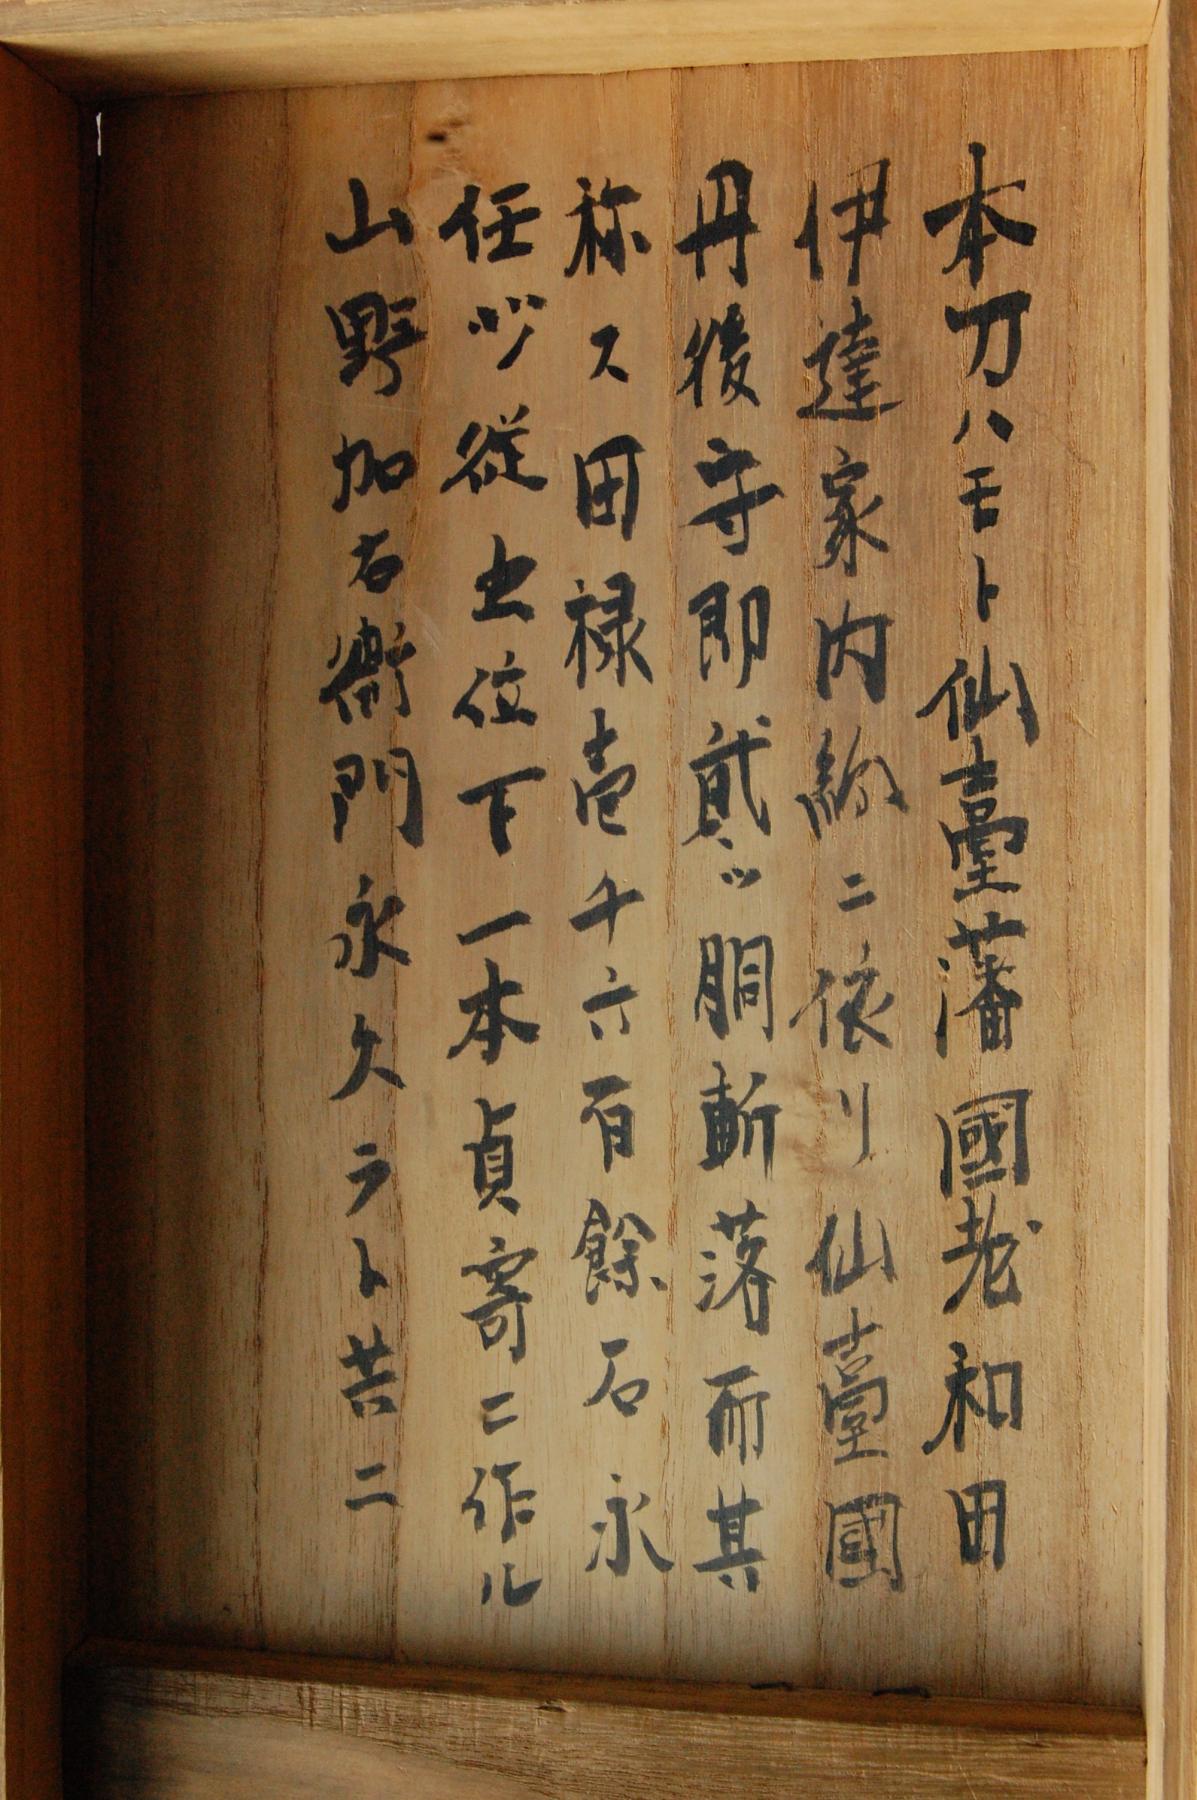 本刀ハモト仙臺藩國老和田
伊達家内約ニ依リ仙臺國
丹後守即貳ッ胴斬落而其
称ス田禄壱千六百餘石永
任ツ従五位下一本貞寄ニ作ル
山野加右衛門永久ラト共ニ